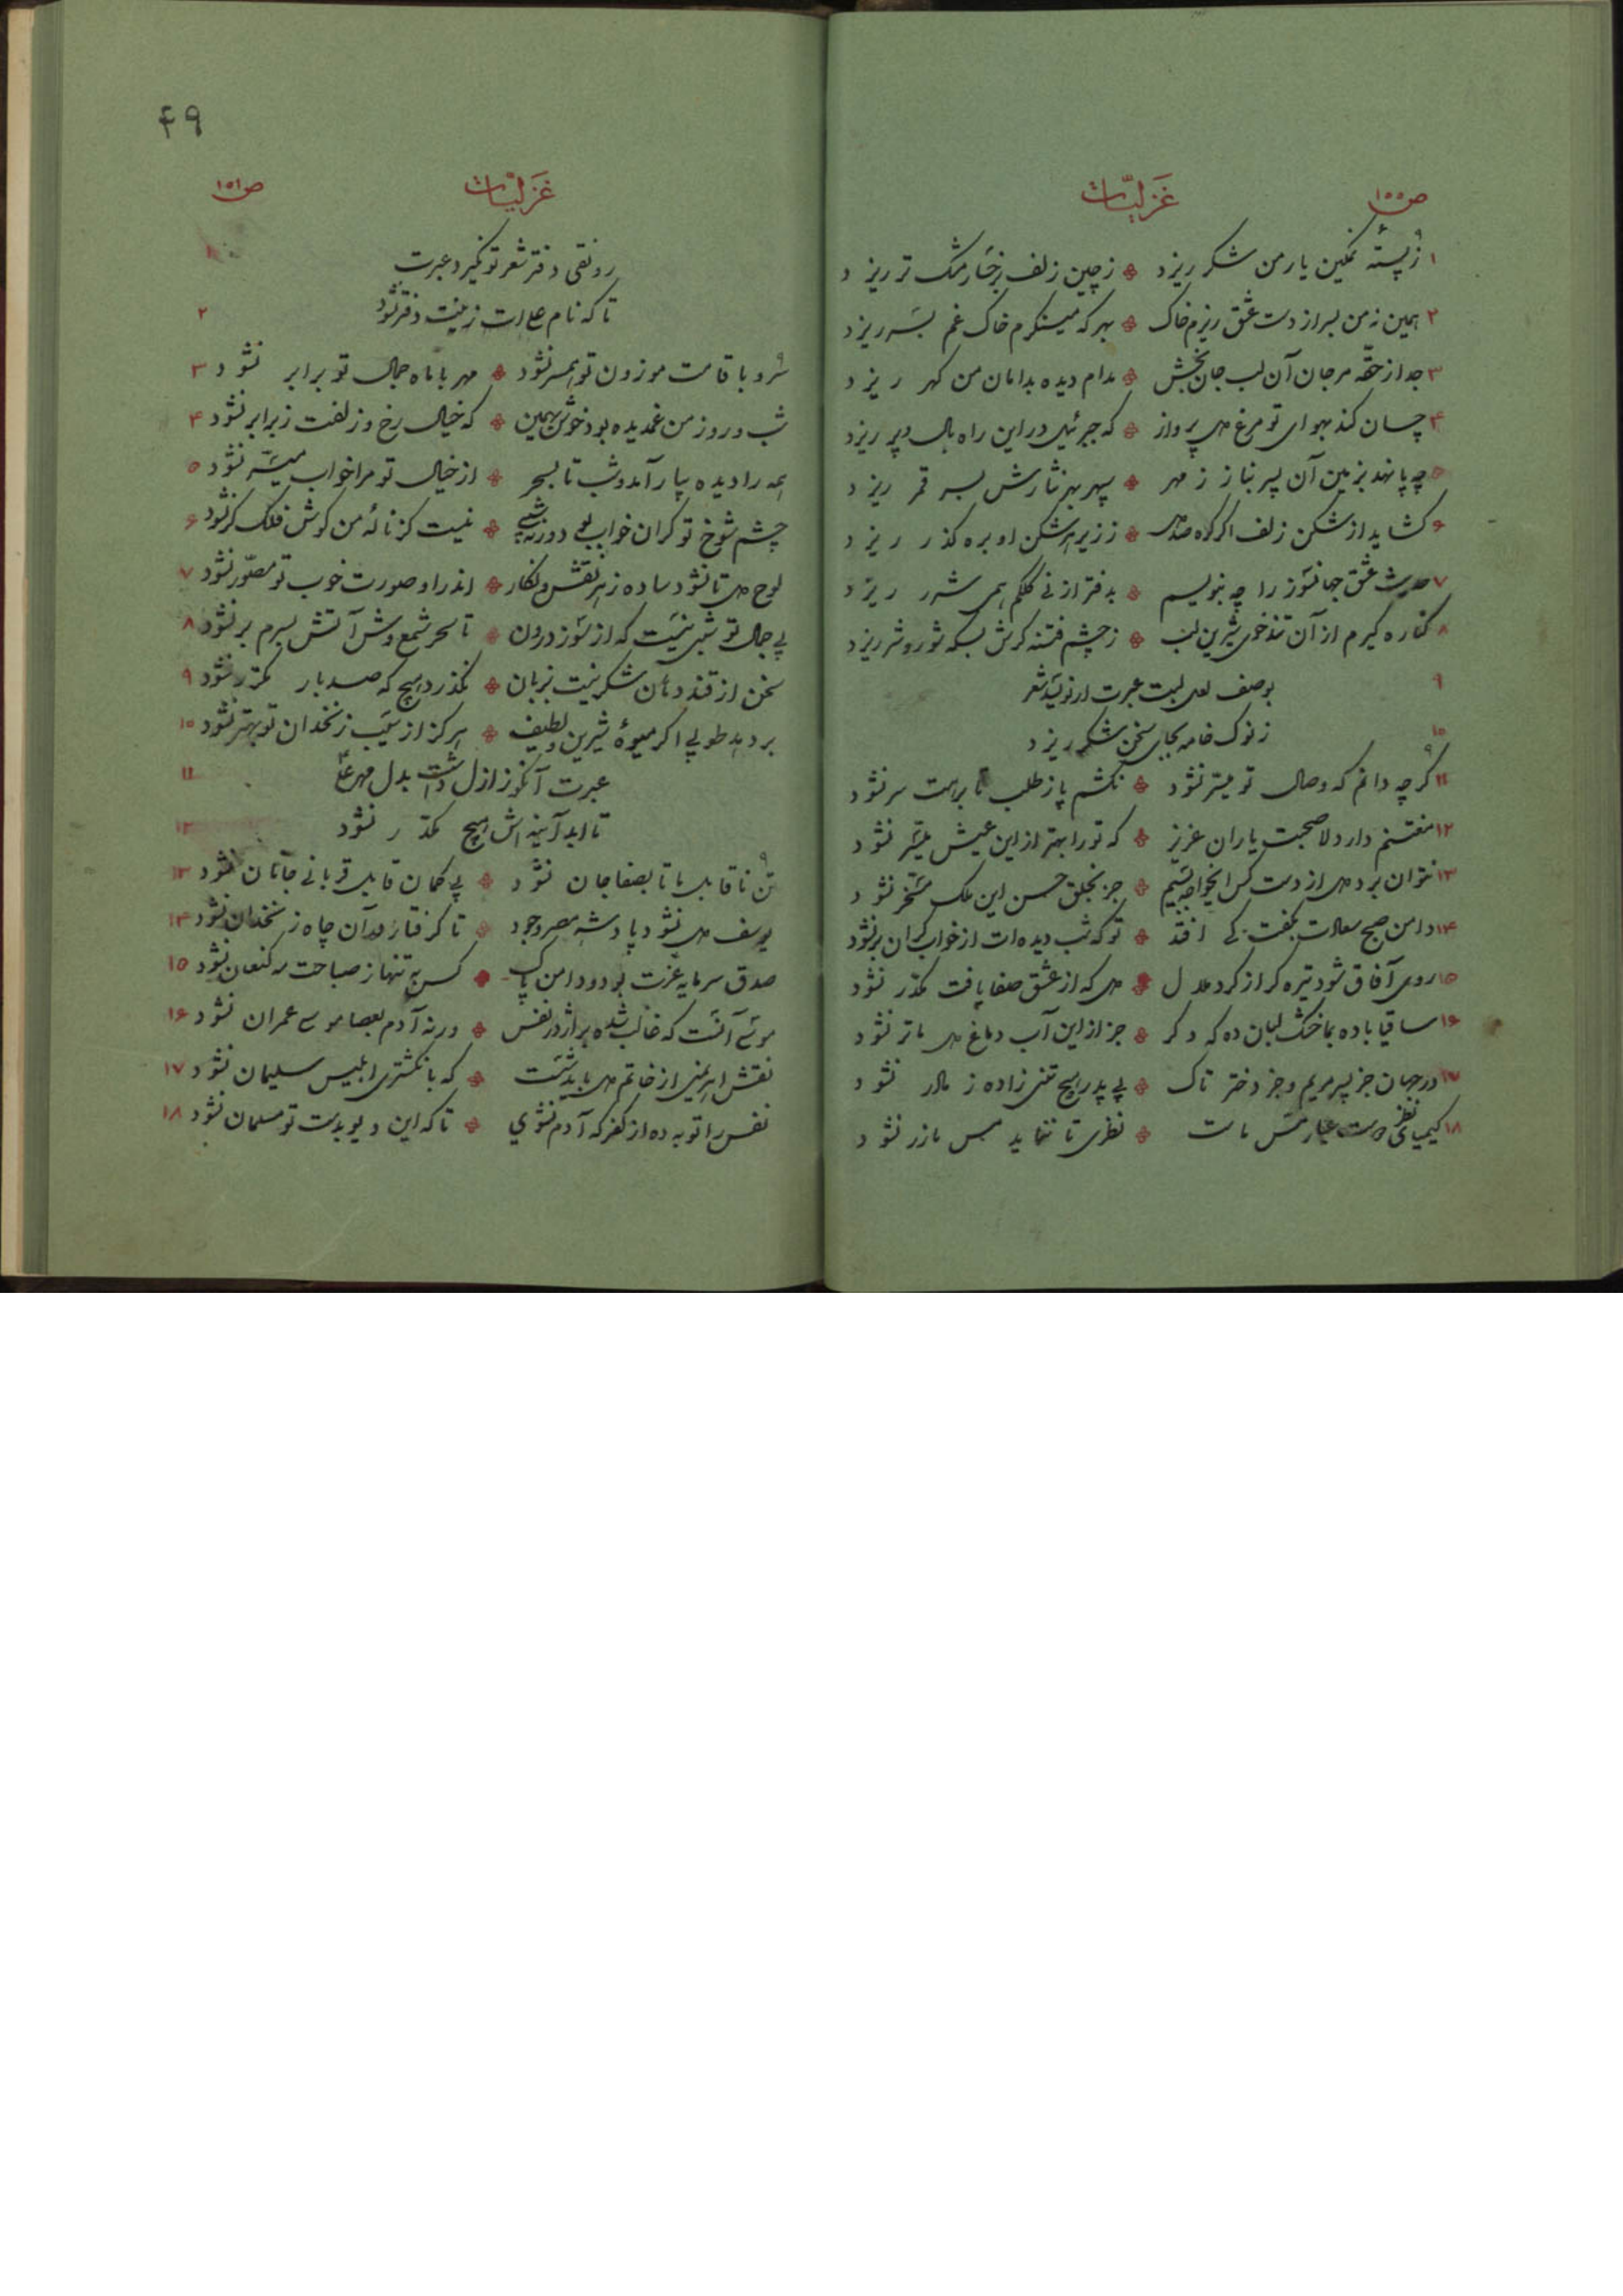 ص ۱۵۵ غزلیّات
۱ ز پستهٔ نمکین یار من شکر ریزد ز چین زلف برخسار مشک تر ریزد
۲ همین نه من بسر از دست عشق ریزم خاک بهر که مینگرم خاک غم بسر ریزد
۳ جدا ز حقّه مرجان آن لب جان بخش مدام دیده بدامان من گهر ریزد
۴ چسان کند بهوای تو مرغ دل پرواز که جبرئیل در این راه بال و پر ریزد
۵ چه پا نهد بزمین آن پسر بناز ز مهر سپهر بهر نثارش بسر قمر ریزد
۶ گشاید از شکن زلف اگر گره صد دل ز زیر هر شکن او بره گذر ریزد
۷ حدیث عشق جهانسوز را چه بنویسم بدفتر از نی کلکم همی شرر ریزد
۸ کناره گیرم از آن تندخوی شیرین لب ز چشم فتنه گرش بسکه شور و شر ریزد
۹ بوصف لعل لبت عبرت ار نویسد شعر
۱۰ ز نوک خامه بجای سخن شکر ریزد
۱۱ گرچه دانم که وصال تو میسّر نشود نکشم پا ز طلب تا برهت سر نشود
۱۲ مغتنم دار دلا صحبت یاران عزیز که تو را بهتر از این عیش میسّر نشود
۱۳ نتوان برد دل از دست کس ایخواجه بسیم جز بخلق حسن این ملک مسخّر نشود
۱۴ دامن صبح سعادت بکفت کی افتد تو که شب دیده‌ات از خواب گران بر نشود
۱۵ روی آفاق شود تیره گر از گرد ملال دل که از عشق صفا یافت مکدّر نشود
۱۶ ساقیا باده بما خشک لبان ده که دگر جز از این آب دماغ دل ما تر نشود
۱۷ در جهان جز پسر مریم و جز دختر تاک بی پدر هیچ تنی زاده ز مادر نشود
۱۸ کیمیای نظر دوست عیار مس ماست نظری تا ننماید مس ما زر نشود
۴۹
ص ۱۵۱ غزلیّات
۱ رونقی دفتر شعر تو نگیرد عبرت
۲ تا که نام علی‌ات زینت دفتر نشود
۳ سرو با قامت موزون تو همسر نشود مهر با ماه جمال تو برابر نشود
۴ شب و روز من غمدیده بود خوش بهمین که خیال رخ و زلفت ز برابر نشود
۵ همه را دیده بیار آمد و شب تا بسحر از خیال تو مرا خواب میسّر نشود
۶ چشم شوخ تو گران خواب بود ورنه شبی نیست کز نالهٔ من گوش فلک کر نشود
۷ لوح دل تا نشود ساده ز هر نقش و نگار اندر او صورت خوب تو مصوّر نشود
۸ بی جمال تو شبی نیست که از سوز درون تا سحر شمع وش آتش بسرم بر نشود
۹ سخن از قند دهان شکرینت بزبان نگذرد هیچ که صد بار مکرّر نشود
۱۰ بر دهد طوبی اگر میوهٔ شیرین و لطیف هرگز از سیب زنخدان تو بهتر نشود
۱۱ عبرت آنکو ز ازل داشت بدل مهر علی
۱۲ تا ابد آینه‌اش هیچ مکدّر نشود
۱۳ تن ناقابل ما تا بصفا جان نشود بی گمان قابل قربانی جانان نشود
۱۴ یوسف دل نشود پادشه مصر وجود تا گرفتار در آن چاه زنخدان نشود
۱۵ صدق سرمایه عزت بود و دامن پاک کس به تنها ز صباحت مه کنعان نشود
۱۶ موسی آنست که غالب شده بر اژدر نفس ورنه آدم بعصا موسی عمران نشود
۱۷ نقش اهریمنی از خاتم دل باید شست که بانگشتری ابلیس سلیمان نشود
۱۸ نفس را توبه ده از کفر که آدم نشوی تا که این دیو بدست تو مسلمان نشود